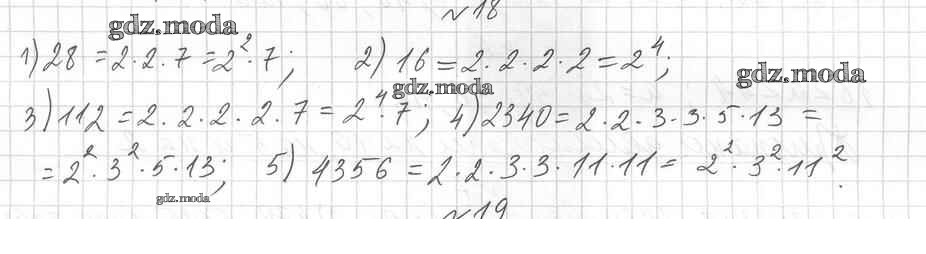 №18
gdz.moda
1) 28 = 2·2·7 = 2²·7; 2) 16 = 2·2·2·2 = 2⁴;
gdz.moda
gdz.moda
3) 112 = 2·2·2·2·7 = 2⁴·7; 4) 2340 = 2·2·3·3·5·13 =
= 2²·3²·5·13; 5) 4356 = 2·2·3·3·11·11 = 2²·3²·11².
gdz.moda
№19